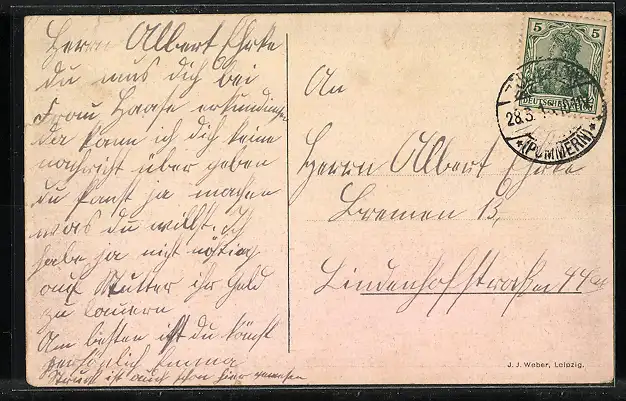 Herrn Albert Ehrke
du mus dich bei
Frau Haase erkundingen
da kann ich dich keine
nachricht über geben
du kanst ja machen
was du willst. Ich
habe ja nicht nötig
auf Mutter ihr Geld
zu lauern
Am besten ist du kömst
persöhnlich Emma
ist auch schon hier gewesen
An
Herrn Albert Ehrke
Bremen 13,
Lindenhofstraße 44
5 5
DEUTSCHES REICH
28.3.
*(POMMERN)*
J. J. Weber, Leipzig.